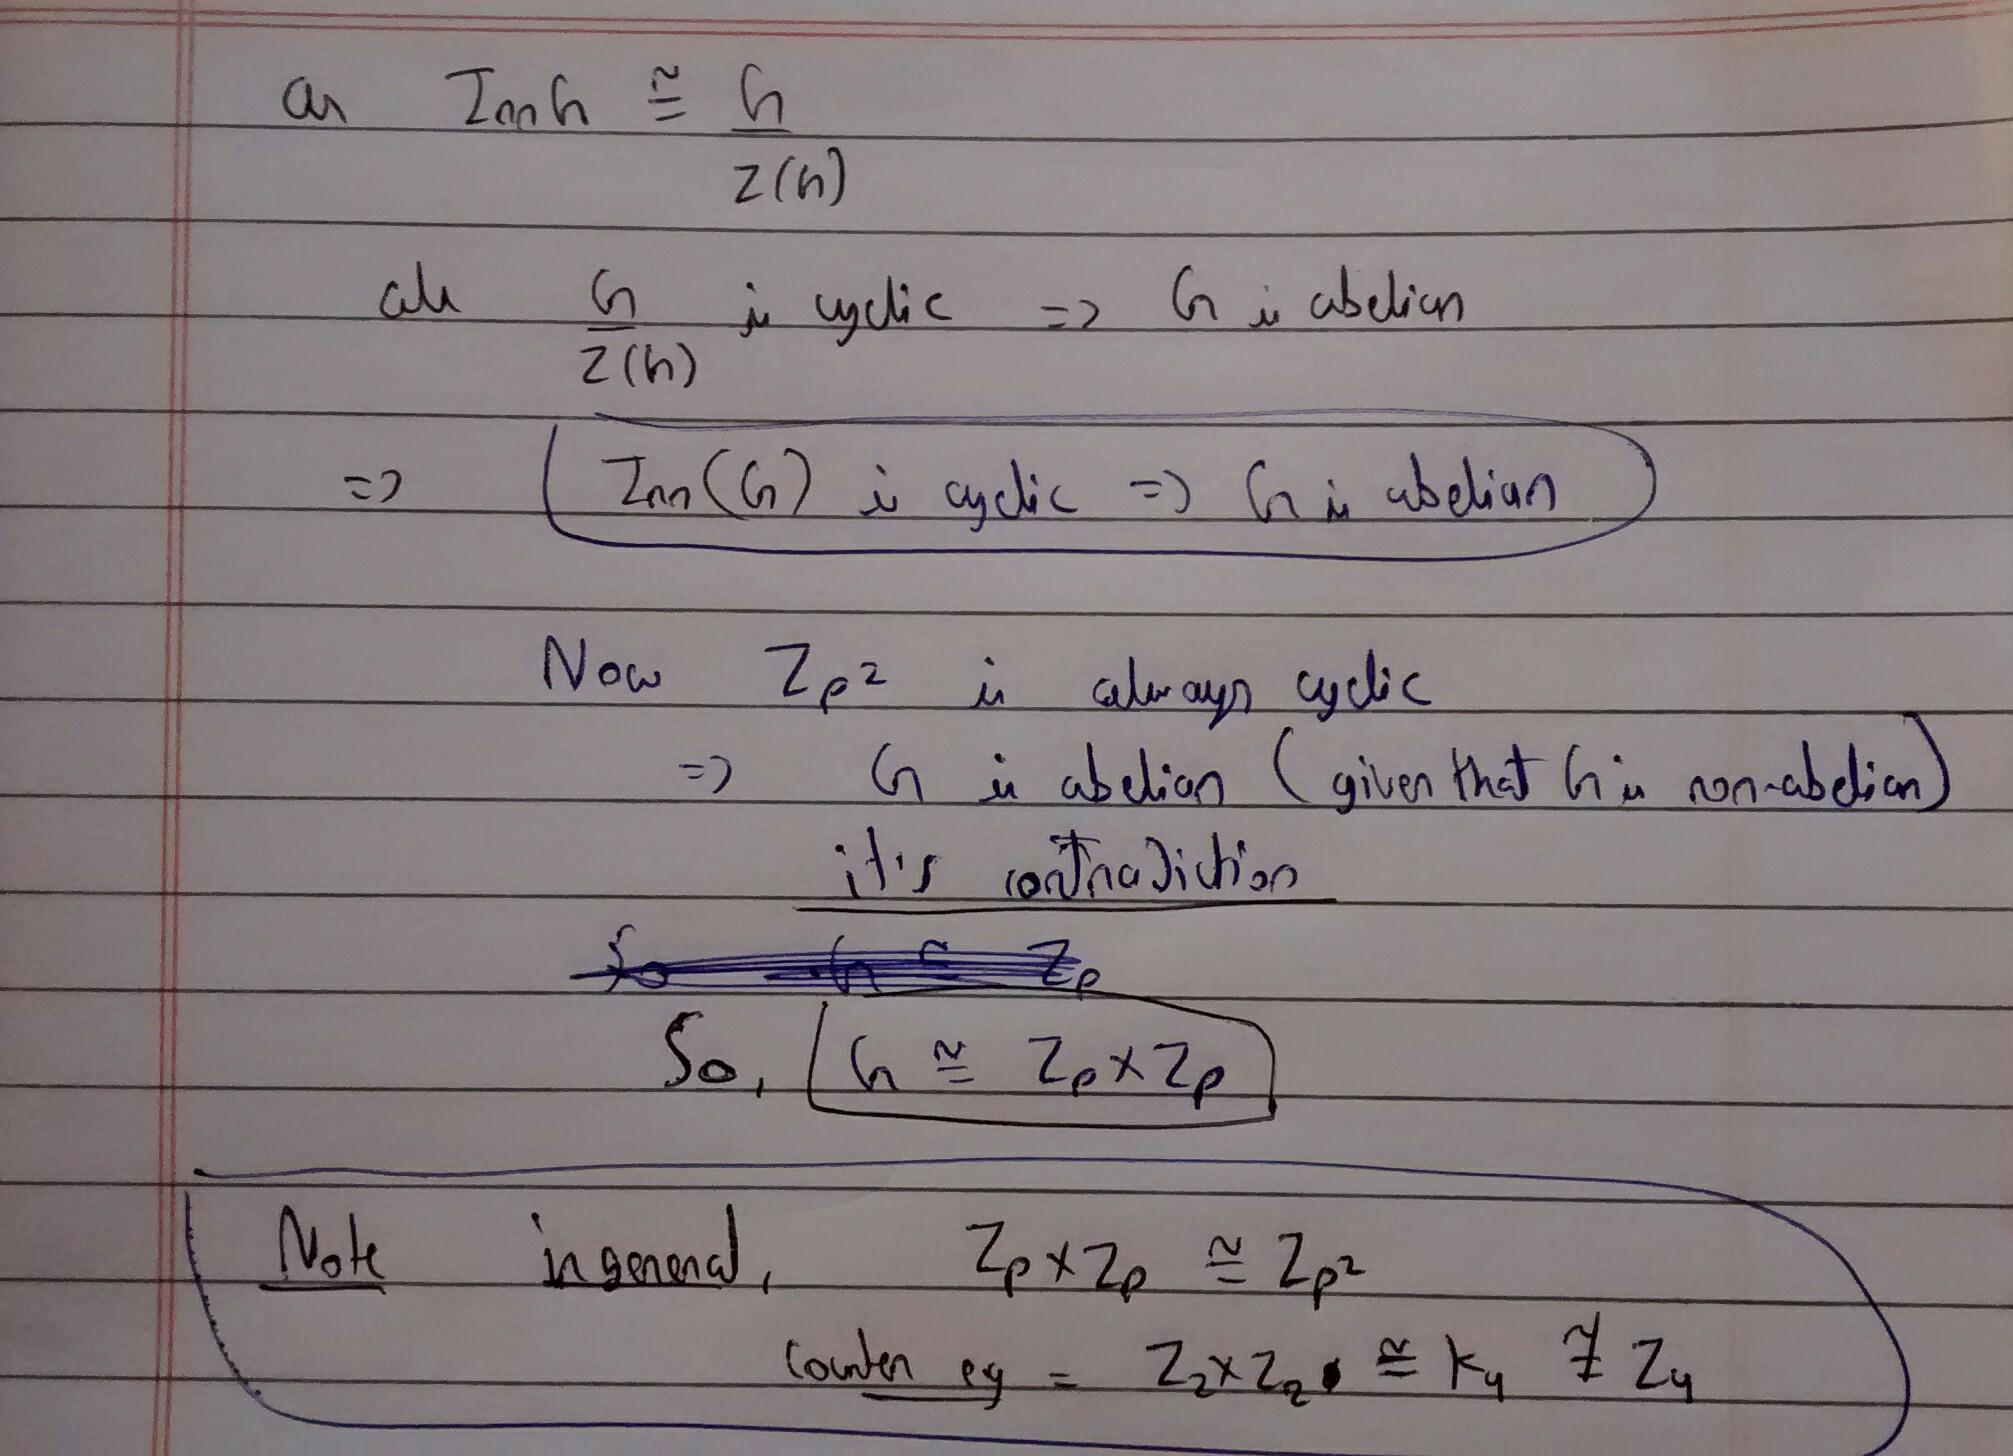 as Inn G ≅ G
Z(G)
als G/Z(G) is cyclic => G is abelian
=> Inn(G) is cyclic => G is abelian
Now Zp² is always cyclic
=> G is abelian (given that G is non-abelian)
it's contradiction
So G ≅ Zp
So, G ≅ Zp×Zp
Note in general, Zp×Zp ≅ Zp²
counter eg = Z₂×Z₂ ≅ K₄ ≇ Z₄